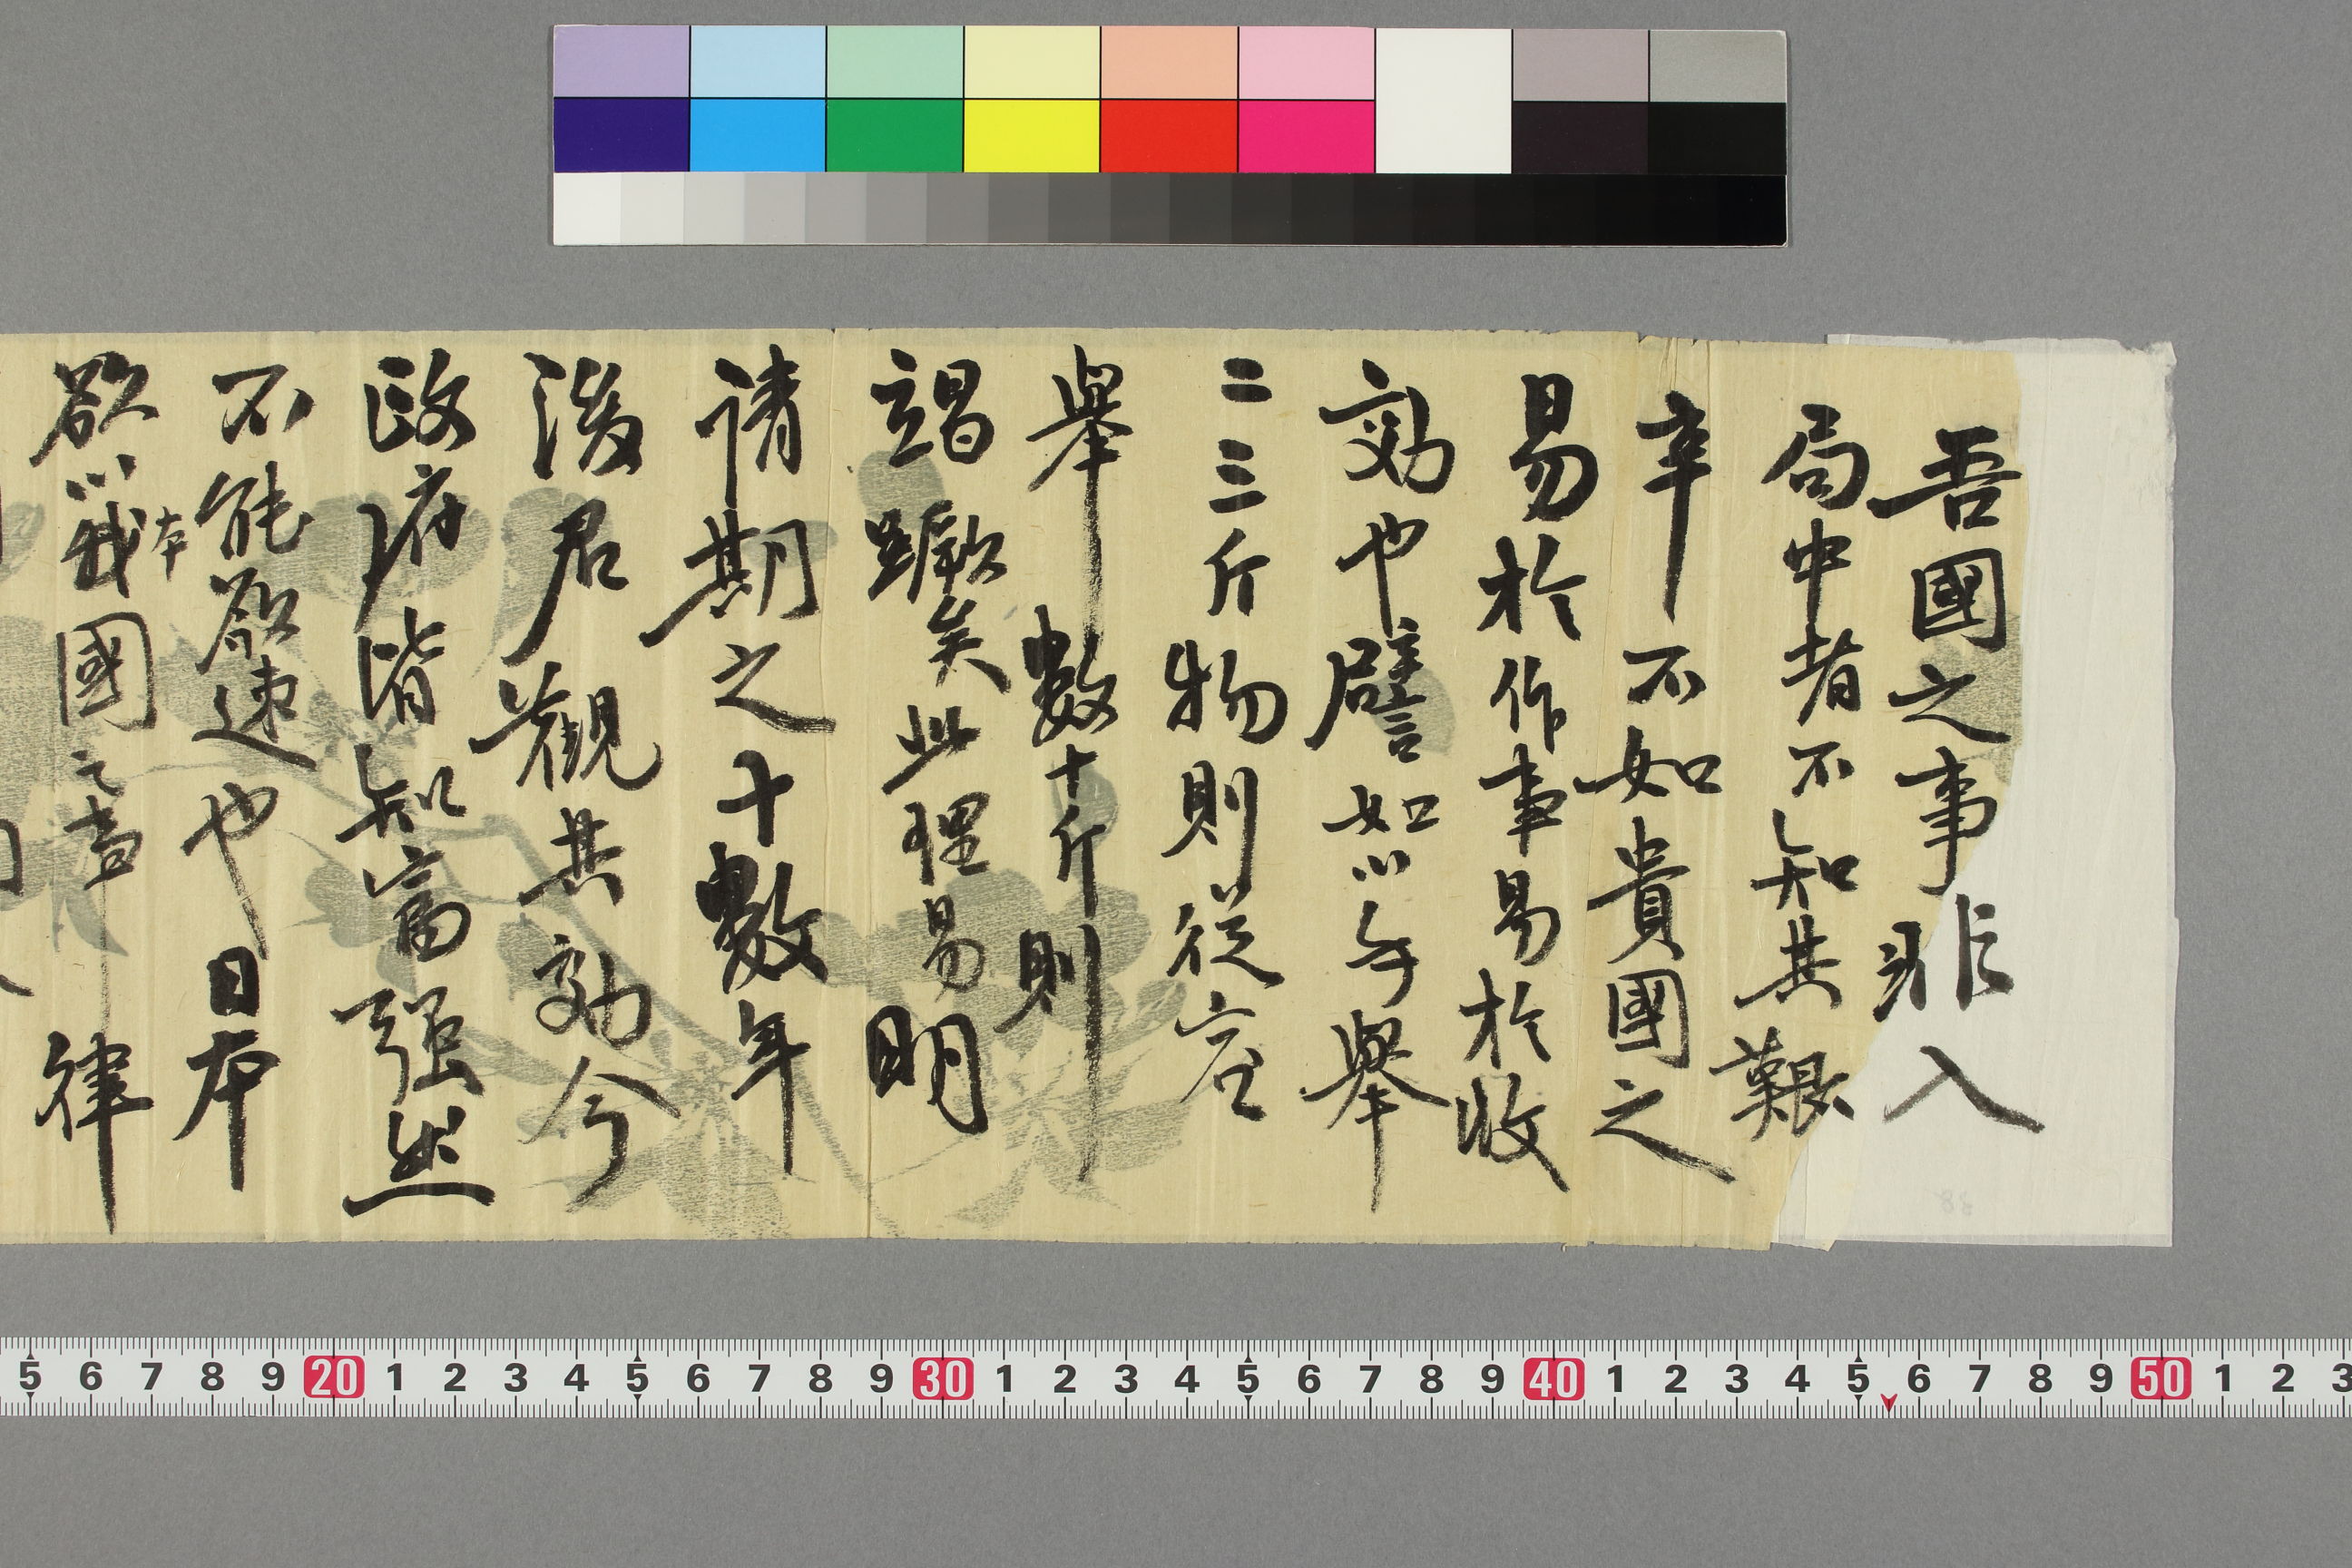 吾國之事非入
局中者不知其艱
辛不如貴國之
易於作事易於收
効也譬如以手舉
二三斤物則從容
舉數十斤則
竭蹶矣此理易明
請期之十數年
後君觀其効今
政府皆知富强然
不能欲速也日本
欲以我本國之章律
5 6 7 8 9 20 1 2 3 4 5 6 7 8 9 30 1 2 3 4 5 6 7 8 9 40 1 2 3 4 5 6 7 8 9 50 1 2 3